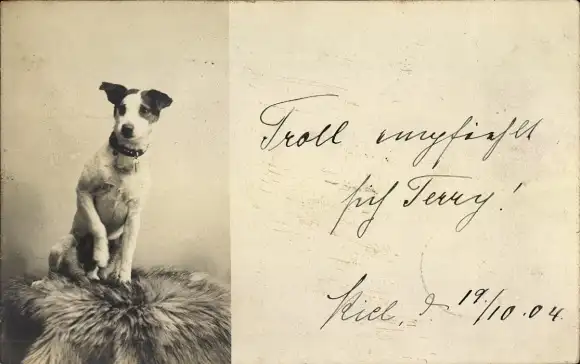 Troll empfiehlt
sich Terry!
Kiel, d. 19./10.04.